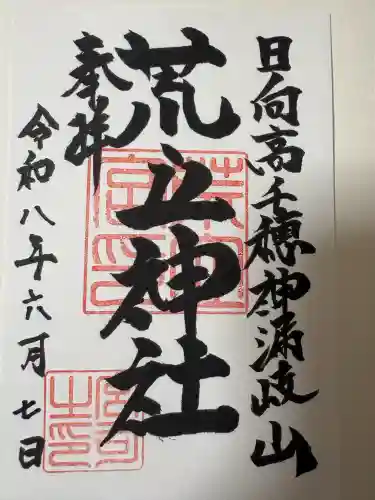 日向高千穂神漏岐山
荒立神社
奉拝
令和八年六月七日